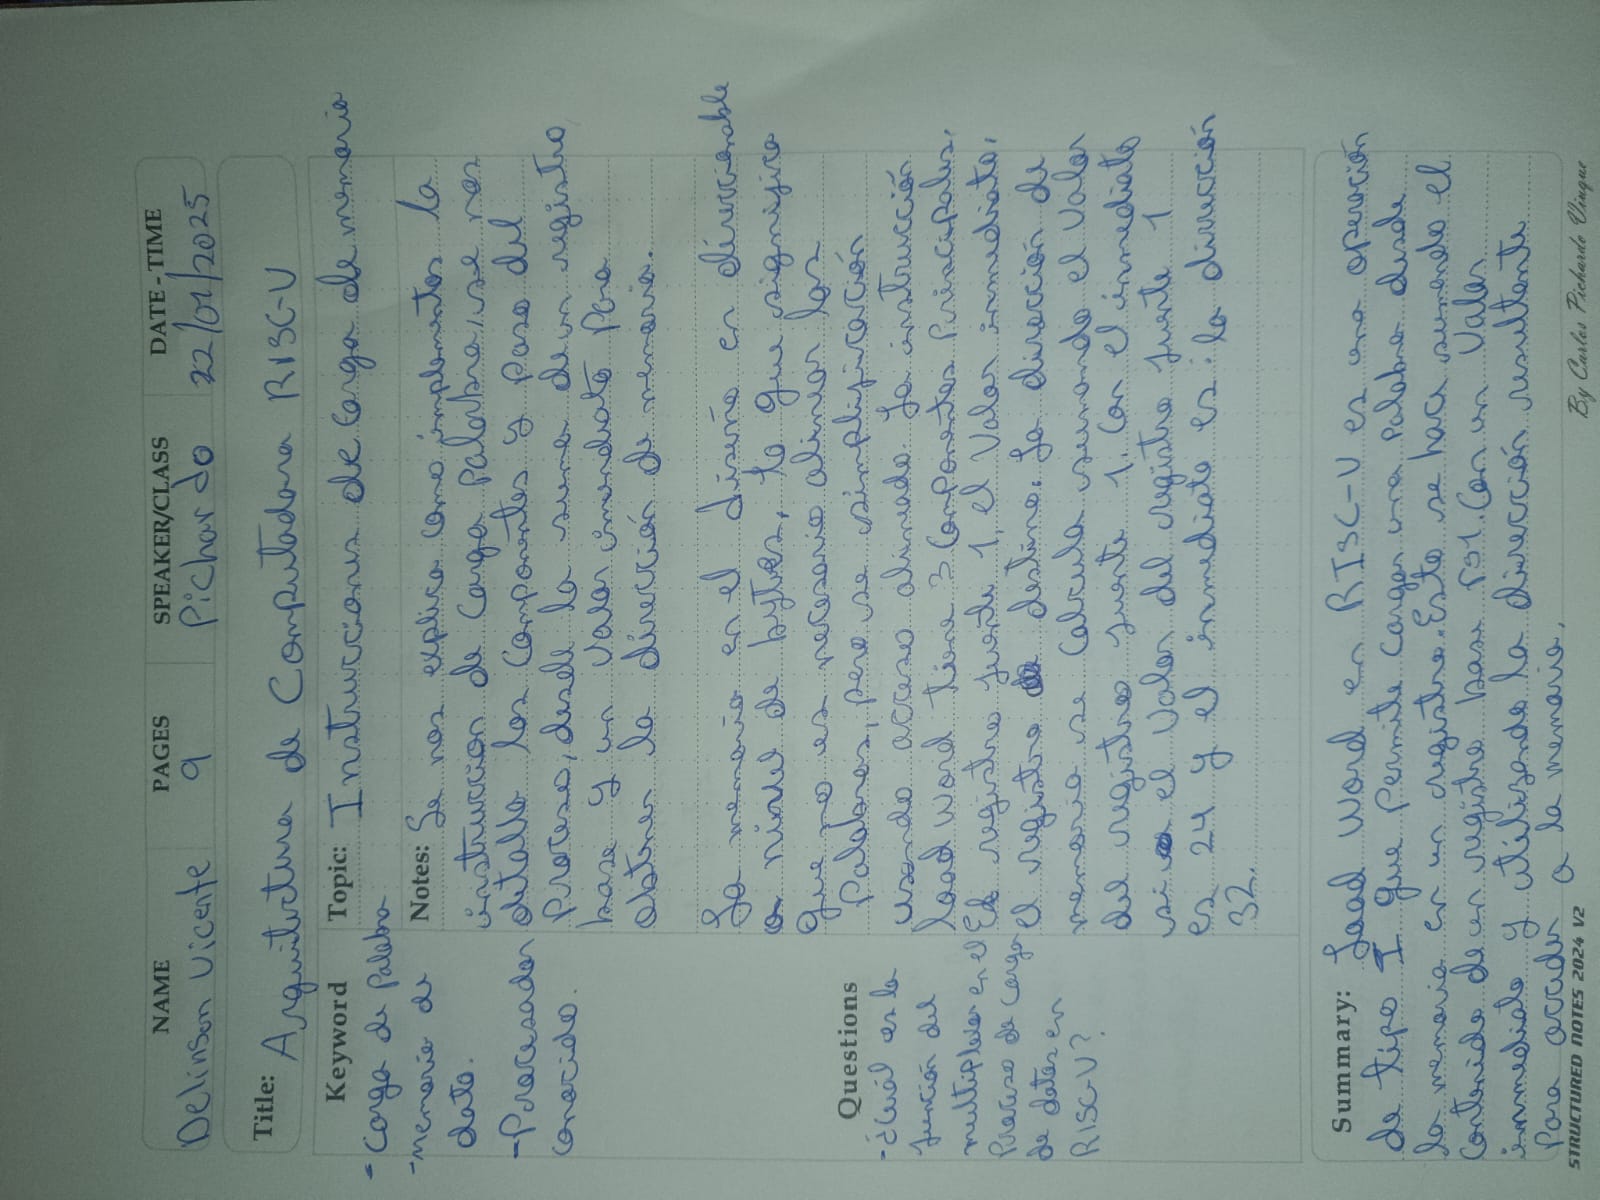 NAME PAGES SPEAKER/CLASS DATE - TIME
Delinson Vicente 9 Pichardo 22/01/2025
Title: Arquitectura de Computadora RISC-V
Keyword
- Carga de Palabra
- memoria de
dato.
- Procesador
conocido.
Topic: Instrucciones de Carga de memoria
Notes: Se nos explica como implementar la
instruccion de Carga Palabra, se nos
detalla los Componentes y paso del
Proceso, desde la suma de un registro
base y un Valor inmediato Para
obtener la dirección de memoria.
La memoria en el diseño en direccionable
a nivel de bytes, lo que significa
Que no es necesario alinear las
Palabras, pero se simplificación
usando acceso alineado. La instrucción
load word tiene 3 Componentes Principales,
El registro fuente 1, el Valor inmediato,
el registro de destino. La dirección de
memoria se calcula sumando el Valor
del registro fuente 1. Con el inmediato
si el Valor del registro fuente 1
es 24 y el inmediato es : la dirección
32.
Questions
- ¿Cuál es la
función del
multiplexor en el
Proceso de Carga
de datos en
RISC-V?
Summary: Load Word en RISC-V es una operación
de tipo I que Permite Cargar una Palabra desde
la memoria en un registro. Esto se hace sumando el
Contenido de un registro base rs1. Con un Valor
inmediato y utilizando la dirección resultante
Para acceder a la memoria.
STRUCTURED NOTES 2024 V2 By Carlos Pichardo Vinque